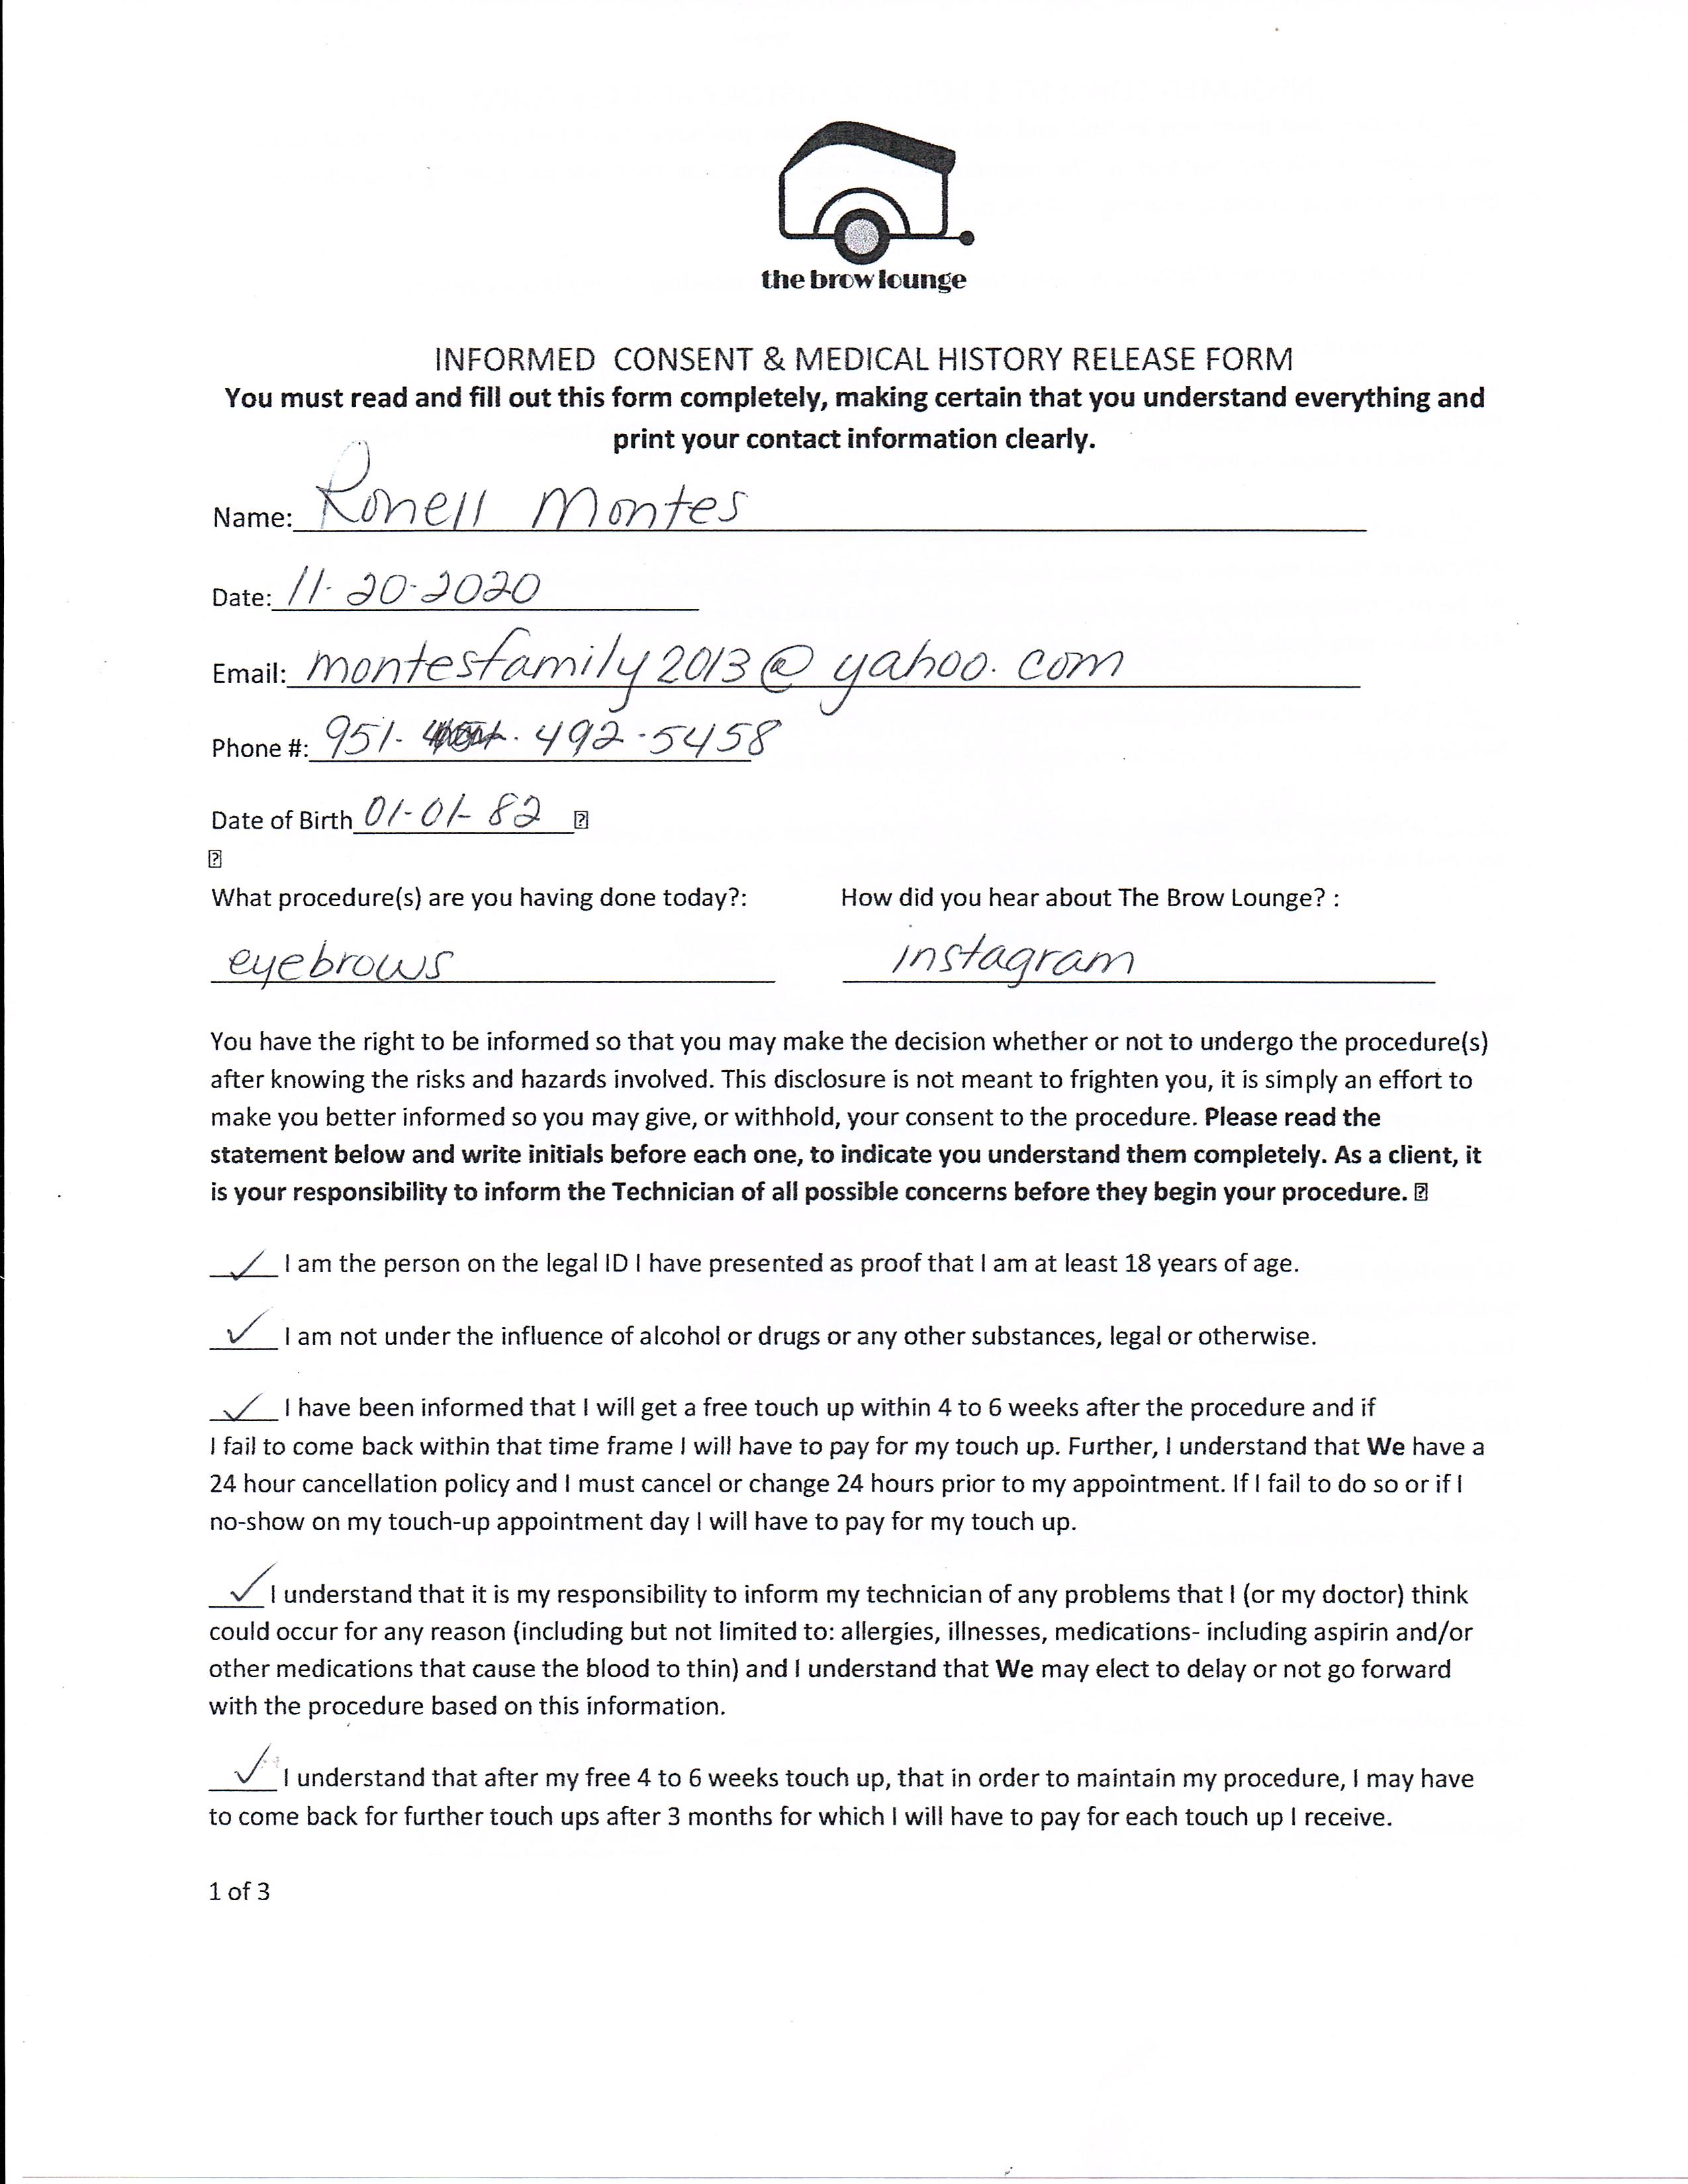 the brow lounge
INFORMED CONSENT & MEDICAL HISTORY RELEASE FORM
You must read and fill out this form completely, making certain that you understand everything and
print your contact information clearly.
Name: Ronell Montes
Date: 11-20-2020
Email: montesfamily2013@yahoo.com
Phone #: 951- 492-5458
Date of Birth 01-01-82
What procedure(s) are you having done today?: How did you hear about The Brow Lounge? :
eyebrows instagram
You have the right to be informed so that you may make the decision whether or not to undergo the procedure(s)
after knowing the risks and hazards involved. This disclosure is not meant to frighten you, it is simply an effort to
make you better informed so you may give, or withhold, your consent to the procedure. Please read the
statement below and write initials before each one, to indicate you understand them completely. As a client, it
is your responsibility to inform the Technician of all possible concerns before they begin your procedure.
✓ I am the person on the legal ID I have presented as proof that I am at least 18 years of age.
✓ I am not under the influence of alcohol or drugs or any other substances, legal or otherwise.
✓ I have been informed that I will get a free touch up within 4 to 6 weeks after the procedure and if
I fail to come back within that time frame I will have to pay for my touch up. Further, I understand that We have a
24 hour cancellation policy and I must cancel or change 24 hours prior to my appointment. If I fail to do so or if I
no-show on my touch-up appointment day I will have to pay for my touch up.
✓ I understand that it is my responsibility to inform my technician of any problems that I (or my doctor) think
could occur for any reason (including but not limited to: allergies, illnesses, medications- including aspirin and/or
other medications that cause the blood to thin) and I understand that We may elect to delay or not go forward
with the procedure based on this information.
✓ I understand that after my free 4 to 6 weeks touch up, that in order to maintain my procedure, I may have
to come back for further touch ups after 3 months for which I will have to pay for each touch up I receive.
1 of 3